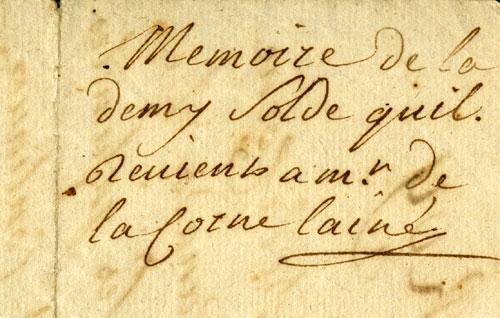 Memoire de la
demy Solde quil
revient a mr. de
la Corne lainé